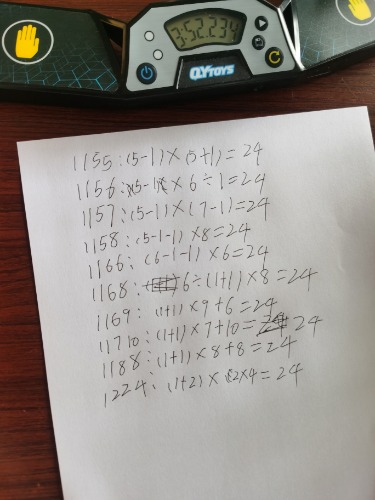 3:52.234
QY TOYS
1155:(5-1)×(5+1)=24
1156:(5-1)×6÷1=24
1157:(5-1)×(7-1)=24
1158:(5-1-1)×8=24
1166:(6-1-1)×6=24
1168:6÷(1+1)×8=24
1169:(1+1)×9+6=24
11710:(1+1)×7+10=24
1188:(1+1)×8+8=24
1224:(1+2)×2×4=24